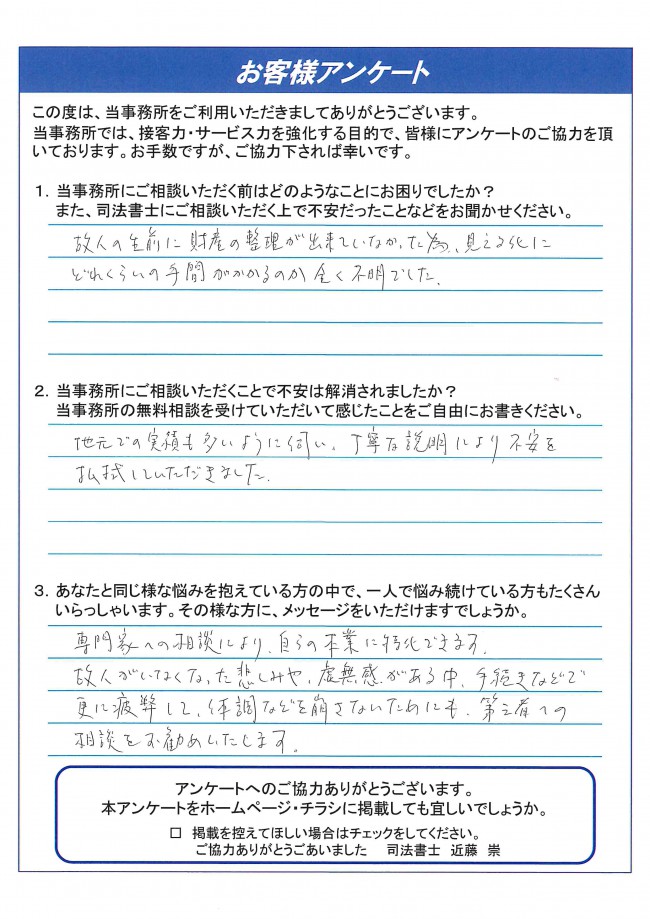 お客様アンケート
この度は、当事務所をご利用いただきましてありがとうございます。
当事務所では、接客力・サービス力を強化する目的で、皆様にアンケートのご協力を頂
いております。お手数ですが、ご協力下されば幸いです。
1. 当事務所にご相談いただく前はどのようなことにお困りでしたか？
また、司法書士にご相談いただく上で不安だったことなどをお聞かせください。
故人の生前に財産の整理が出来ていなかった為、見える化に
どれくらいの手間がかかるのか全く不明でした。
2. 当事務所にご相談いただくことで不安は解消されましたか？
当事務所の無料相談を受けていただいて感じたことをご自由にお書きください。
地元での実績も多いように伺い、丁寧な説明により不安を
払拭していただきました。
3. あなたと同じ様な悩みを抱えている方の中で、一人で悩み続けている方もたくさん
いらっしゃいます。その様な方に、メッセージをいただけますでしょうか。
専門家への相談により、自らの本業に特化できます。
故人がいなくなった悲しみや、虚無感がある中、手続きなどで
更に疲弊して、体調などを崩さないためにも、第三者への
相談をお勧めいたします。
アンケートへのご協力ありがとうございます。
本アンケートをホームページ・チラシに掲載しても宜しいでしょうか。
□ 掲載を控えてほしい場合はチェックをしてください。
ご協力ありがとうごあいました 司法書士 近藤 崇